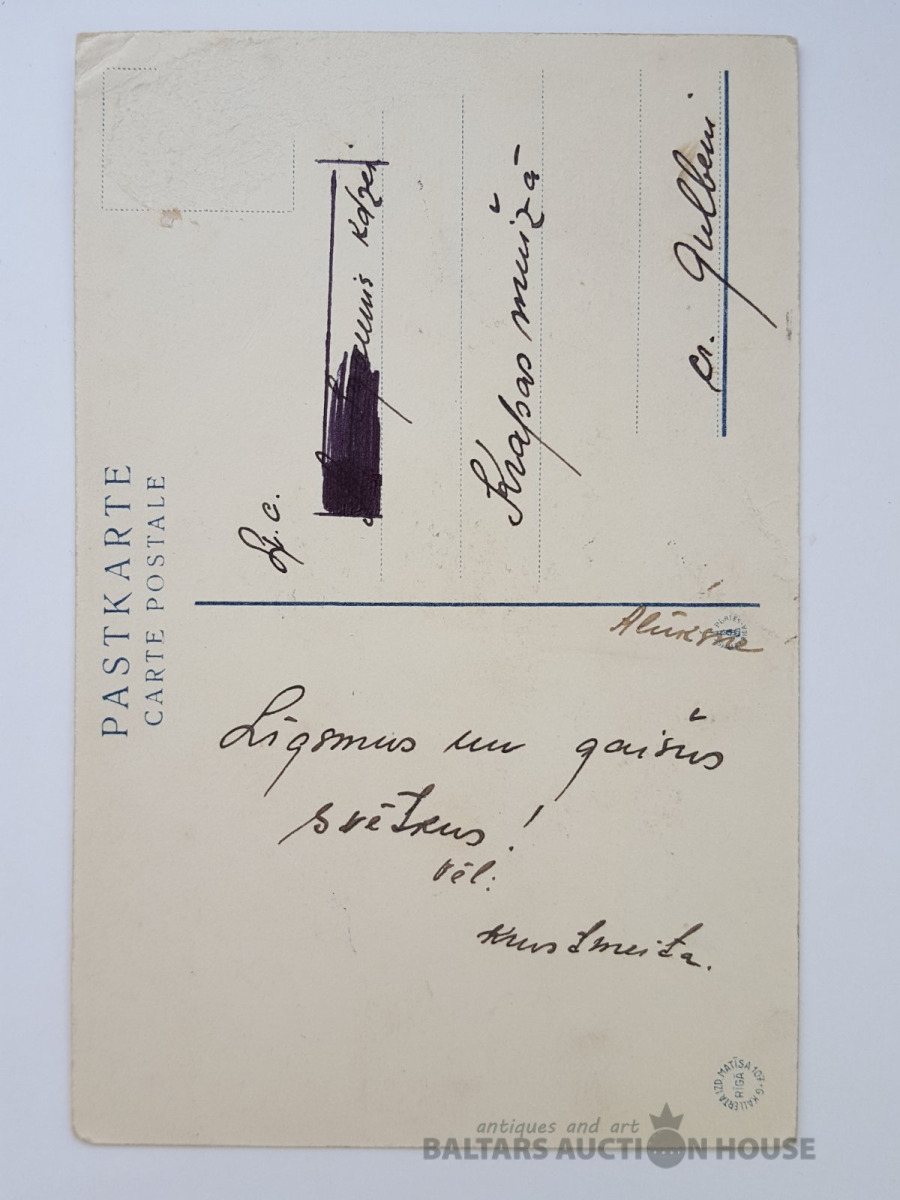 PASTKARTE
CARTE POSTALE
Lj. c.
kdzei
Krapas muižā
cr. Gulbeni
Alūksne
Līgsmus un gaišus
svētkus!
vēl:
krustmeita.
G. KALLERTA IZD. MATĪSA 107
RĪGĀ
antiques and art
BALTARS AUCTION HOUSE